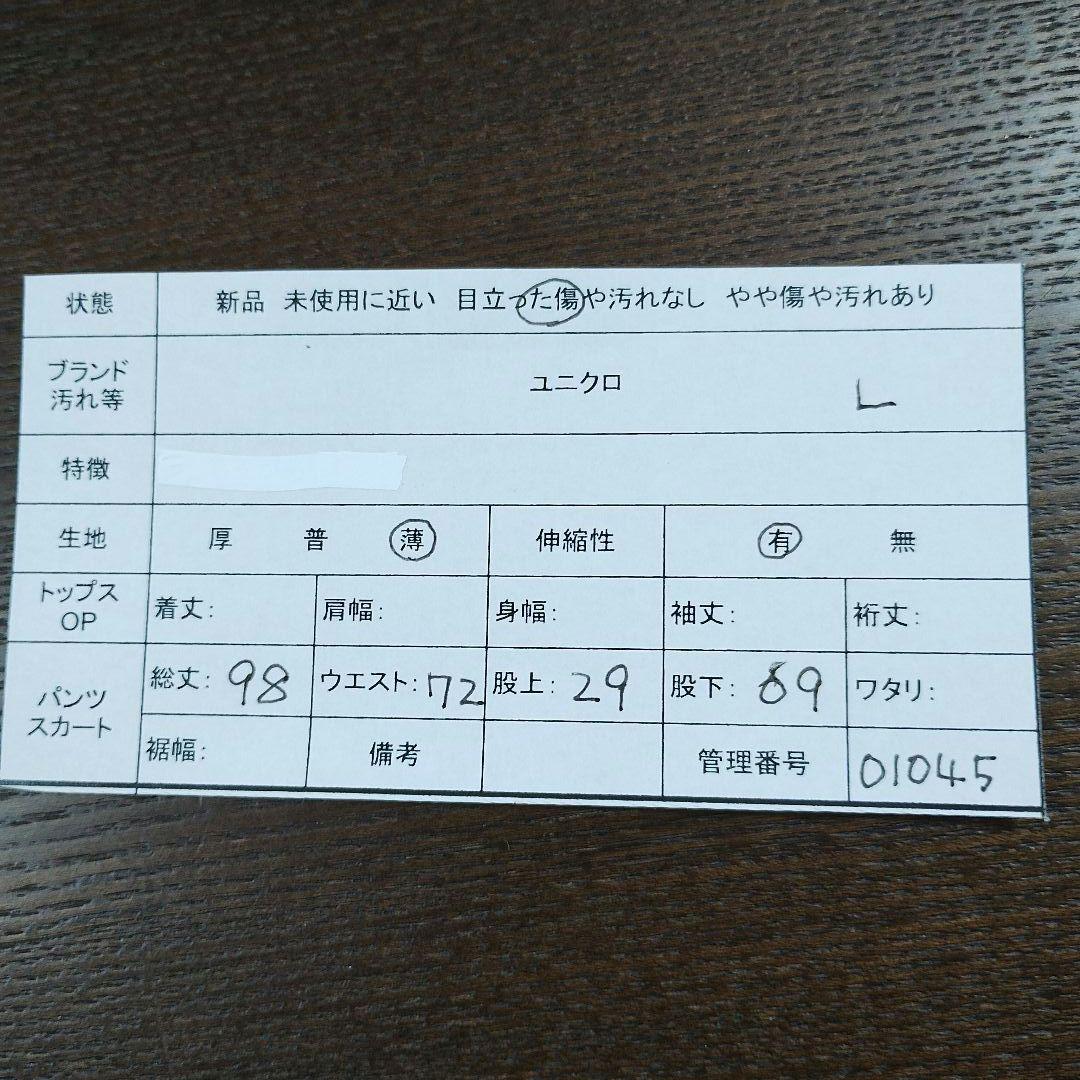 状態 新品 未使用に近い 目立った傷や汚れなし やや傷や汚れあり
ブランド
汚れ等 ユニクロ L
特徴
生地 厚 普 薄 伸縮性 有 無
トップス
OP 着丈: 肩幅: 身幅: 袖丈: 裄丈:
パンツ
スカート 総丈: 98 ウエスト: 72 股上: 29 股下: 69 ワタリ:
裾幅: 備考 管理番号 01045